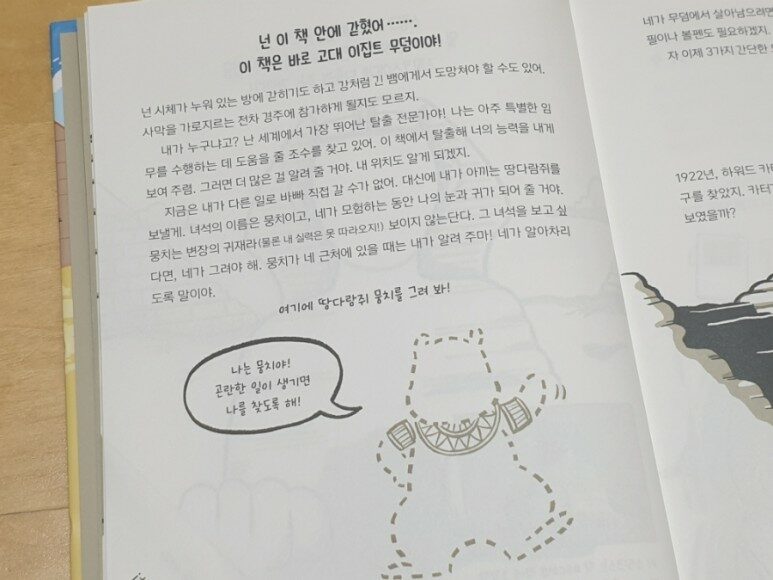 넌 이 책 안에 갇혔어…….
이 책은 바로 고대 이집트 무덤이야!
넌 시체가 누워 있는 방에 갇히기도 하고 강처럼 긴 뱀에게서 도망쳐야 할 수도 있어.
사막을 가로지르는 전차 경주에 참가하게 될지도 모르지.
내가 누구냐고? 난 세계에서 가장 뛰어난 탈출 전문가야! 나는 아주 특별한 임
무를 수행하는 데 도움을 줄 조수를 찾고 있어. 이 책에서 탈출해 너의 능력을 내게
보여 주렴. 그러면 더 많은 걸 알려 줄 거야. 내 위치도 알게 되겠지.
지금은 내가 다른 일로 바빠 직접 갈 수가 없어. 대신에 내가 아끼는 땅다람쥐를
보낼게. 녀석의 이름은 뭉치이고, 네가 모험하는 동안 나의 눈과 귀가 되어 줄 거야.
뭉치는 변장의 귀재라(물론 내 실력은 못 따라오지!) 보이지 않는단다. 그 녀석을 보고 싶
다면, 네가 그려야 해. 뭉치가 네 근처에 있을 때는 내가 알려 주마! 네가 알아차리
도록 말이야.
여기에 땅다람쥐 뭉치를 그려 봐!
나는 뭉치야!
곤란한 일이 생기면
나를 찾도록 해!
네가 무덤에서 살아남으려면
필이나 볼펜도 필요하겠지.
자 이제 3가지 간단한
1922년, 하워드
구를 찾았지.
보였을까?